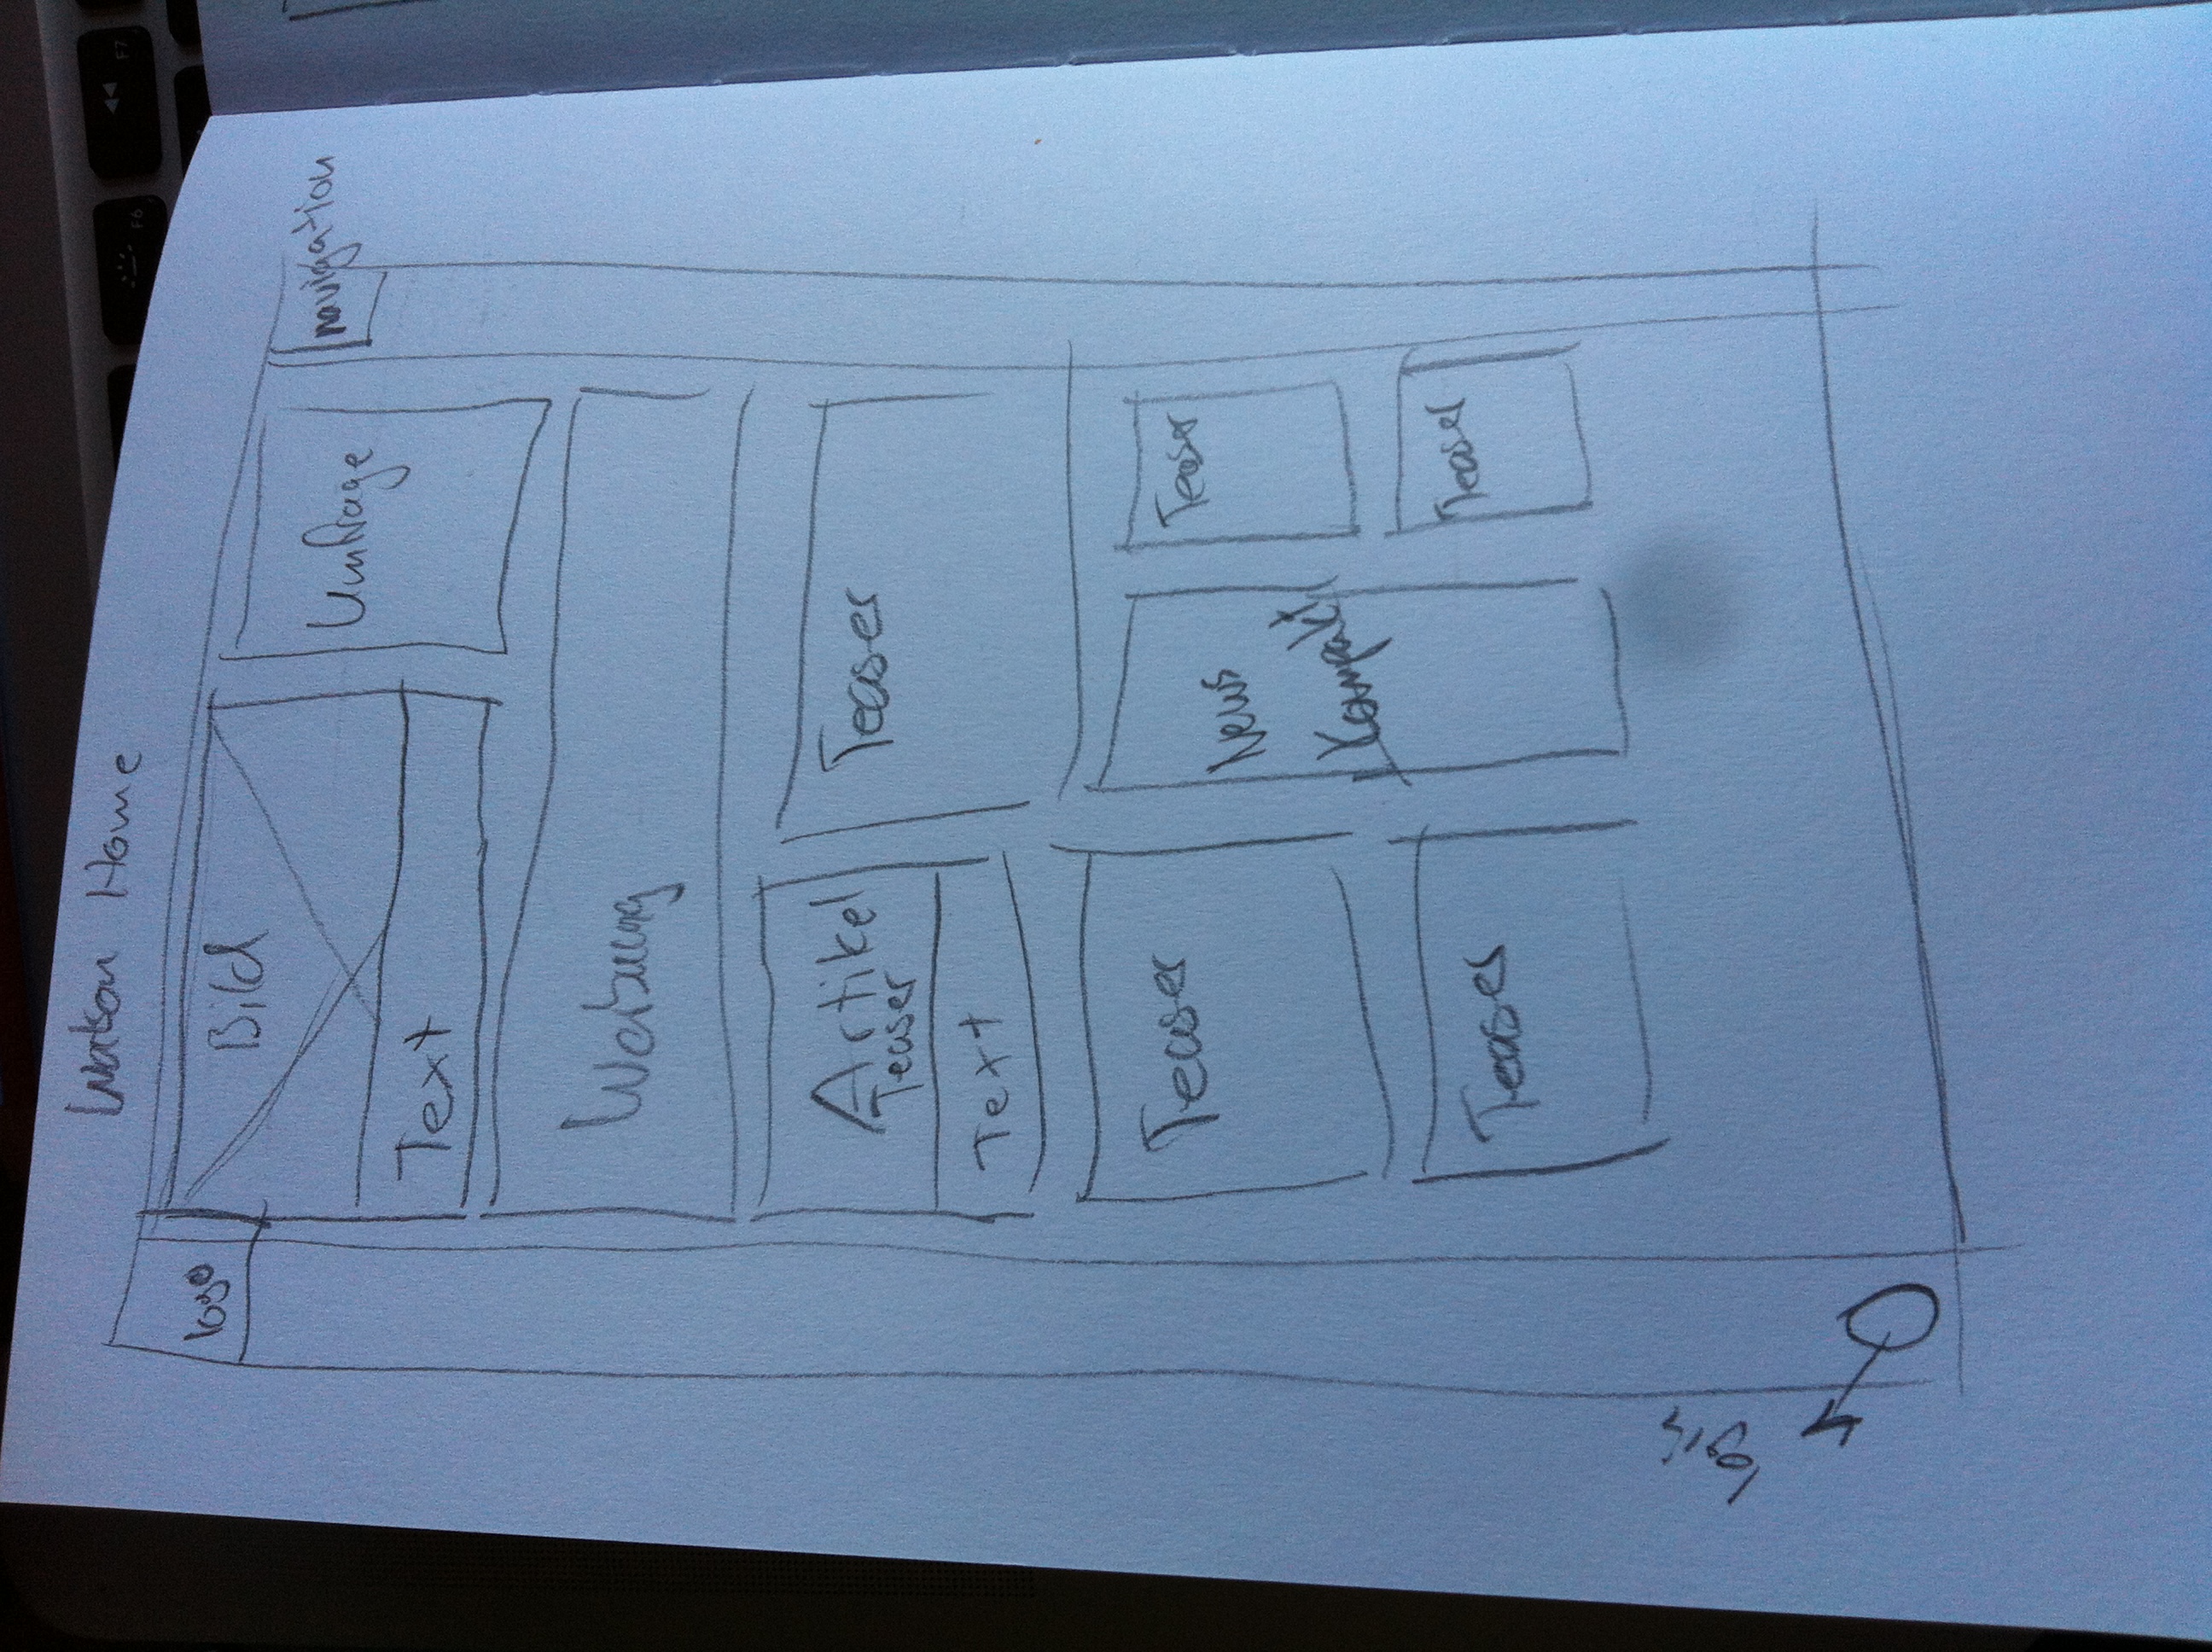 Watson Home
logo
Bild
Umfrage
navigation
Text
Werbung
Artikel
Teaser
Teaser
Text
Teaser
News
Kompakt
Teaser
Teaser
Teaser
login
F6
F7